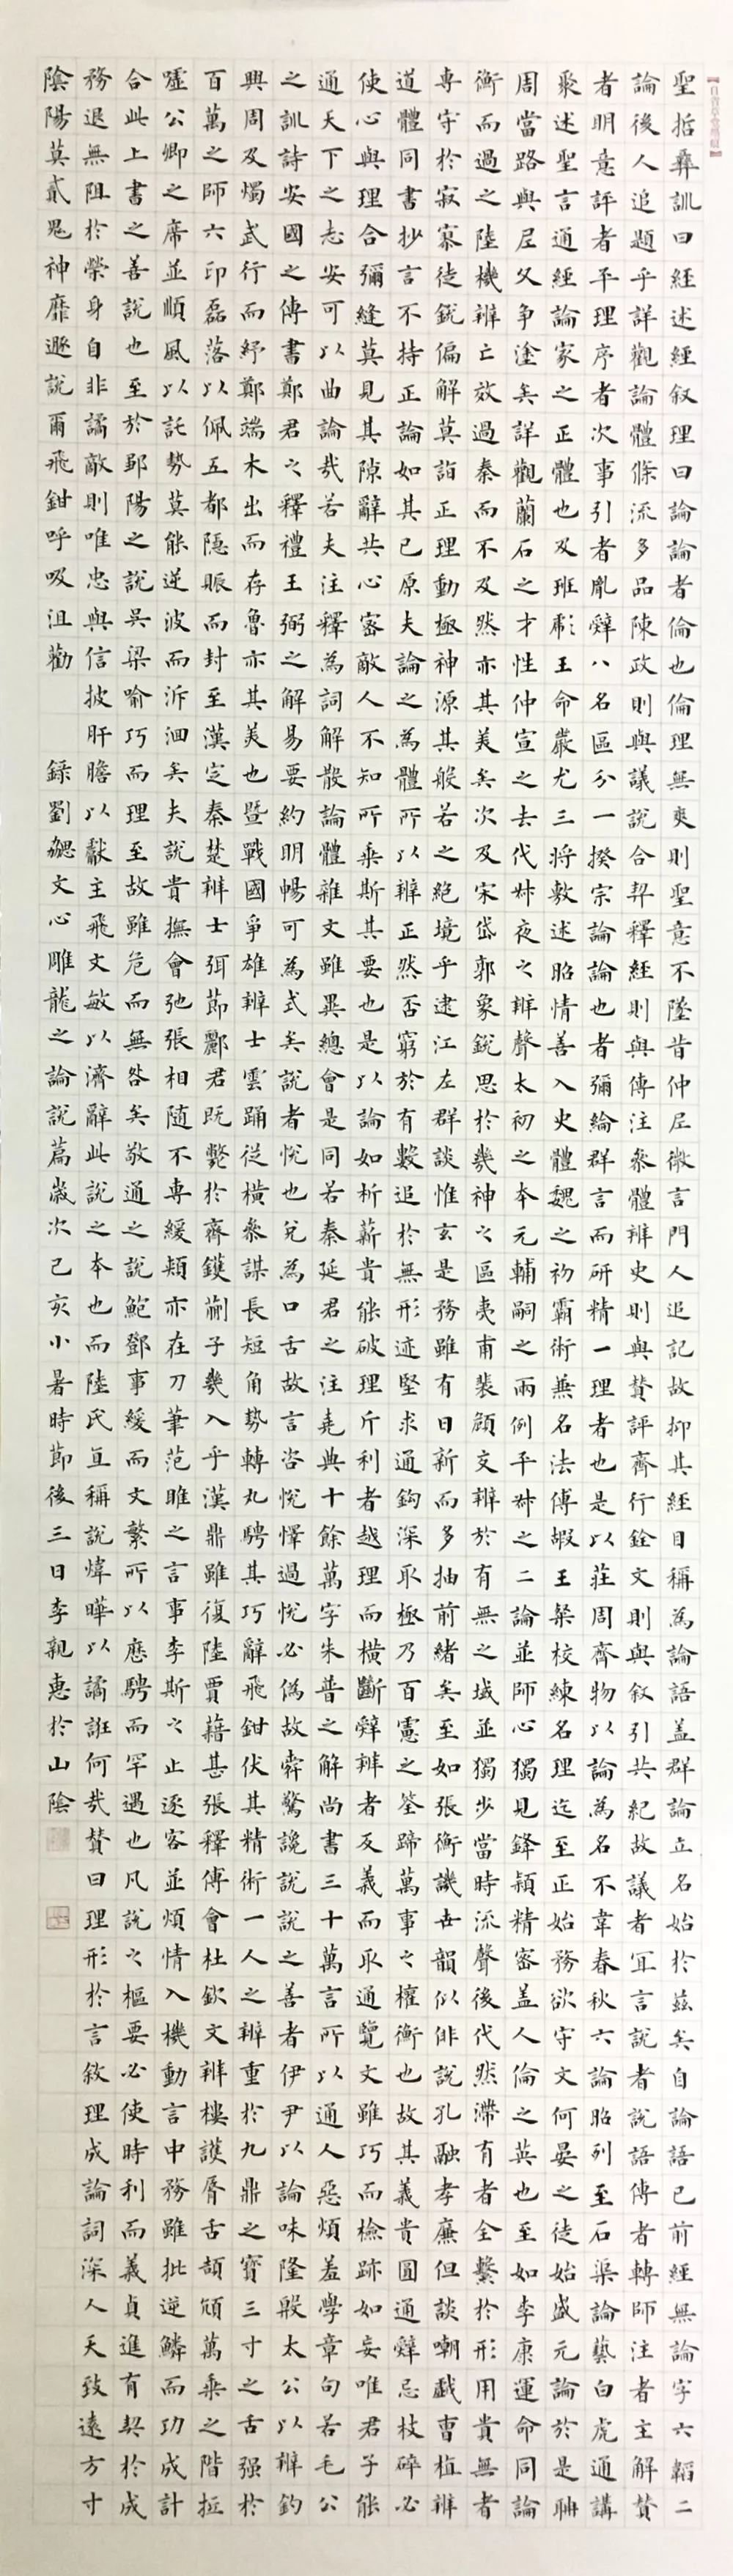 聖哲彝訓曰經述經叙理曰論論者倫也倫理無爽則聖意不墜昔仲尼微言門人追記故抑其經目稱為論語蓋群論立名始於茲矣自論語已前經無論字六韜二
論後人追題乎詳觀論體條流多品陳政則與議說合契釋經則與傳注參體辨史則與贊評齊行銓文則與叙引共紀故議者宜言說者說語傳者轉師注者主解贊
者明意評者平理序者次事引者胤辭八名區分一揆宗論論也者彌綸群言而研精一理者也是以莊周齊物以論為名不韋春秋六論昭列至石渠論藝白虎通講
聚述聖言通經論家之正體也及班彪王命嚴尤三將敷述昭情善入史體魏之初霸術兼名法傅嘏王粲校練名理迄至正始務欲守文何晏之徒始盛元論於是聃
周當路與尼父争塗矣詳觀蘭石之才性仲宣之去代叔夜之辨聲太初之本元輔嗣之兩例平叔之二論並師心獨見鋒穎精密蓋人倫之英也至如李康運命同論
衡而過之陸機辨亡效過秦而不及然亦其美矣次及宋岱郭象銳思於幾神之區夷甫裴頠交辨於有無之域並獨步當時流聲後代然滯有者全繫於形用貴無者
專守於寂寥徒銳偏解莫詣正理動極神源其般若之絕境乎逮江左群談惟玄是務雖有日新而多抽前緒矣至如張衡譏世韻似俳說孔融孝廉但談嘲戲曹植辨
道體同書抄言不持正論如其已原夫論之為體所以辨正然否窮於有數追於無形迹堅求通鈎深取極乃百慮之筌蹄萬事之權衡也故其義貴圓通辭忌枝碎必
使心與理合彌縫莫見其隙辭共心密敵人不知所乘斯其要也是以論如析薪貴能破理斤利者越理而橫斷辭辨者反義而取通覽文雖巧而檢跡如妄唯君子能
通天下之志安可以曲論哉若夫注釋為詞解散論體雜文雖異總會是同若秦延君之注堯典十餘萬字朱普之解尚書三十萬言所以通人惡煩羞學章句若毛公
之訓詩安國之傳書鄭君之釋禮王弼之解易要約明暢可為式矣說者悅也兌為口舌故言咨悅懌過悅必偽故舜驚讒說說之善者伊尹以論味隆殷太公以辨釣
興周及燭武行而紓鄭端木出而存魯亦其美也暨戰國爭雄辨士雲踊從橫參謀長短角勢轉丸騁其巧辭飛鉗伏其精術一人之辨重於九鼎之寶三寸之舌强於
百萬之師六印磊落以佩五都隱賑而封至漢定秦楚辨士弭節酈君既斃於齊鑊蒯子幾入乎漢鼎雖復陸賈藉甚張釋傅會杜欽文辨樓護脣舌頡頏萬乘之階抵
噓公卿之席並順風以託勢莫能逆波而泝洄矣夫說貴撫會弛張相隨不專緩頰亦在刀筆范雎之言事李斯之止逐客並煩情入機動言中務雖批逆鱗而功成計
合此上書之善說也至於鄒陽之說吳梁喻巧而理至故雖危而無咎矣敬通之說鮑鄧事緩而文繁所以應騁而罕遇也凡說之樞要必使時利而義貞進有契於成
務退無阻於榮身自非譎敵則唯忠與信披肝膽以獻主飛文敏以濟辭此說之本也而陸氏直稱說煒曄以譎誑何哉贊曰理形於言敘理成論詞深人天致遠方寸
陰陽莫貳鬼神靡遯說爾飛鉗呼吸沮勸 錄劉勰文心雕龍之論說篇歲次己亥小暑時節後三日李親惠於山陰